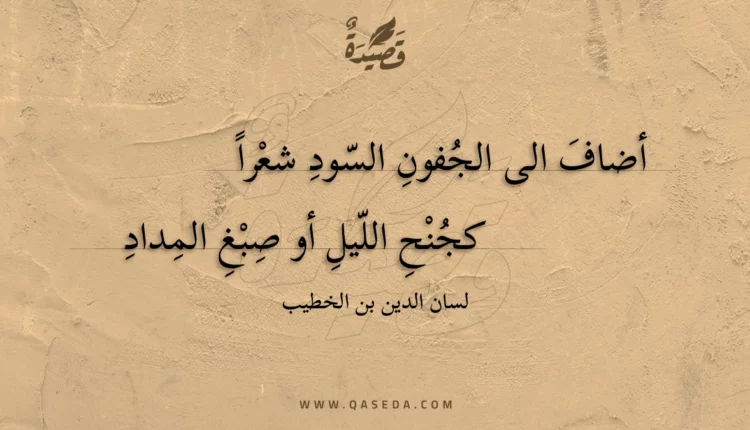 قَصِيدَةٌ
أضافَ الى الجُفونِ السّودِ شعْراً
كجُنْحِ اللّيلِ أو صِبْغِ المِدادِ
لسان الدين بن الخطيب
WWW.QASEDA.COM